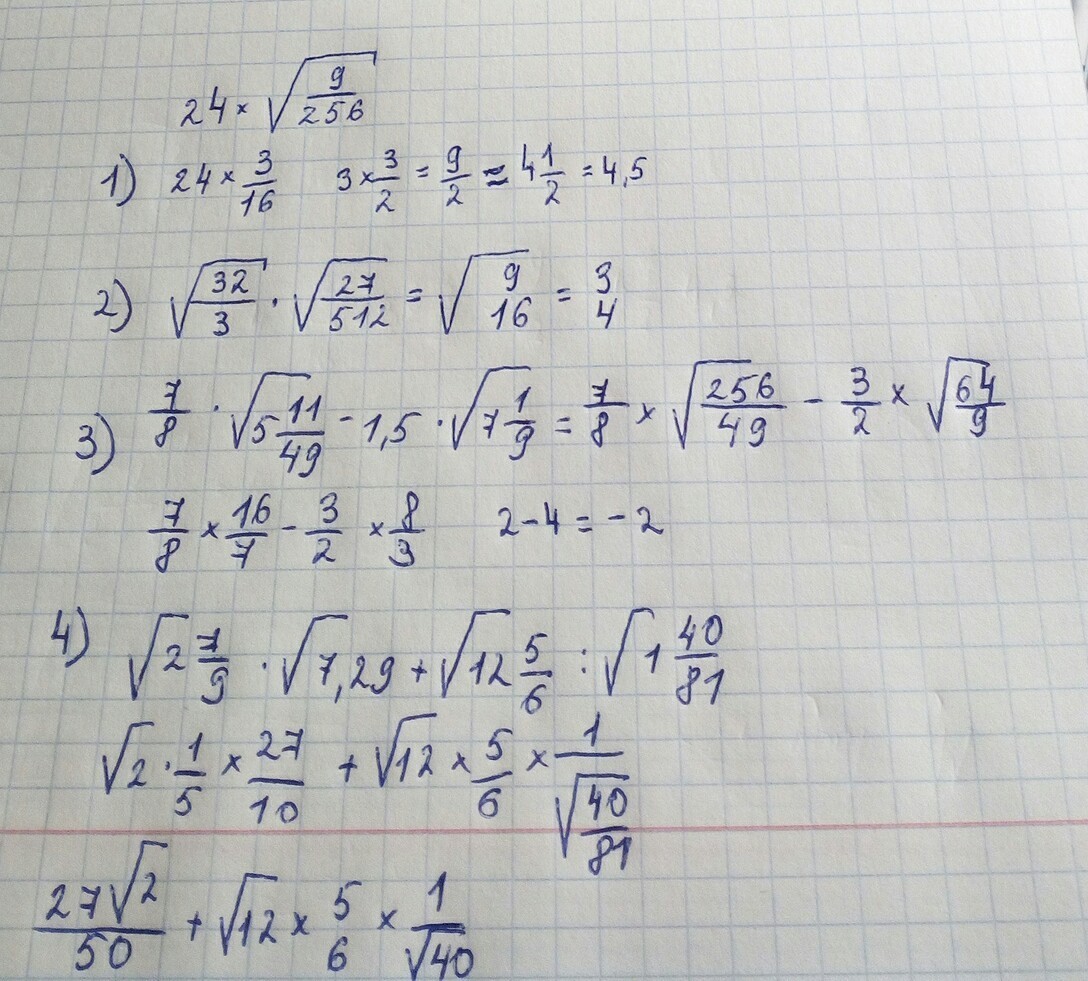 24 × √(9/256)
1) 24 × 3/16   3 × 3/2 = 9/2 = 4 1/2 = 4,5
2) √(32/3) · √(27/512) = √(9 16) = 3 4
3) 7/8 · √(5 11/49) - 1,5 · √(7 1/9) = 7/8 × √(256/49) - 3/2 × √(64/9)
7/8 × 16/7 - 3/2 × 8/3   2 - 4 = - 2
4) √2 7/9 · √7,29 + √12 5/6 : √1 40/81
√2 · 1/5 × 27/10 + √12 × 5/6 × 1/√(40/81)
27√2/50 + √12 × 5/6 × 1/√40